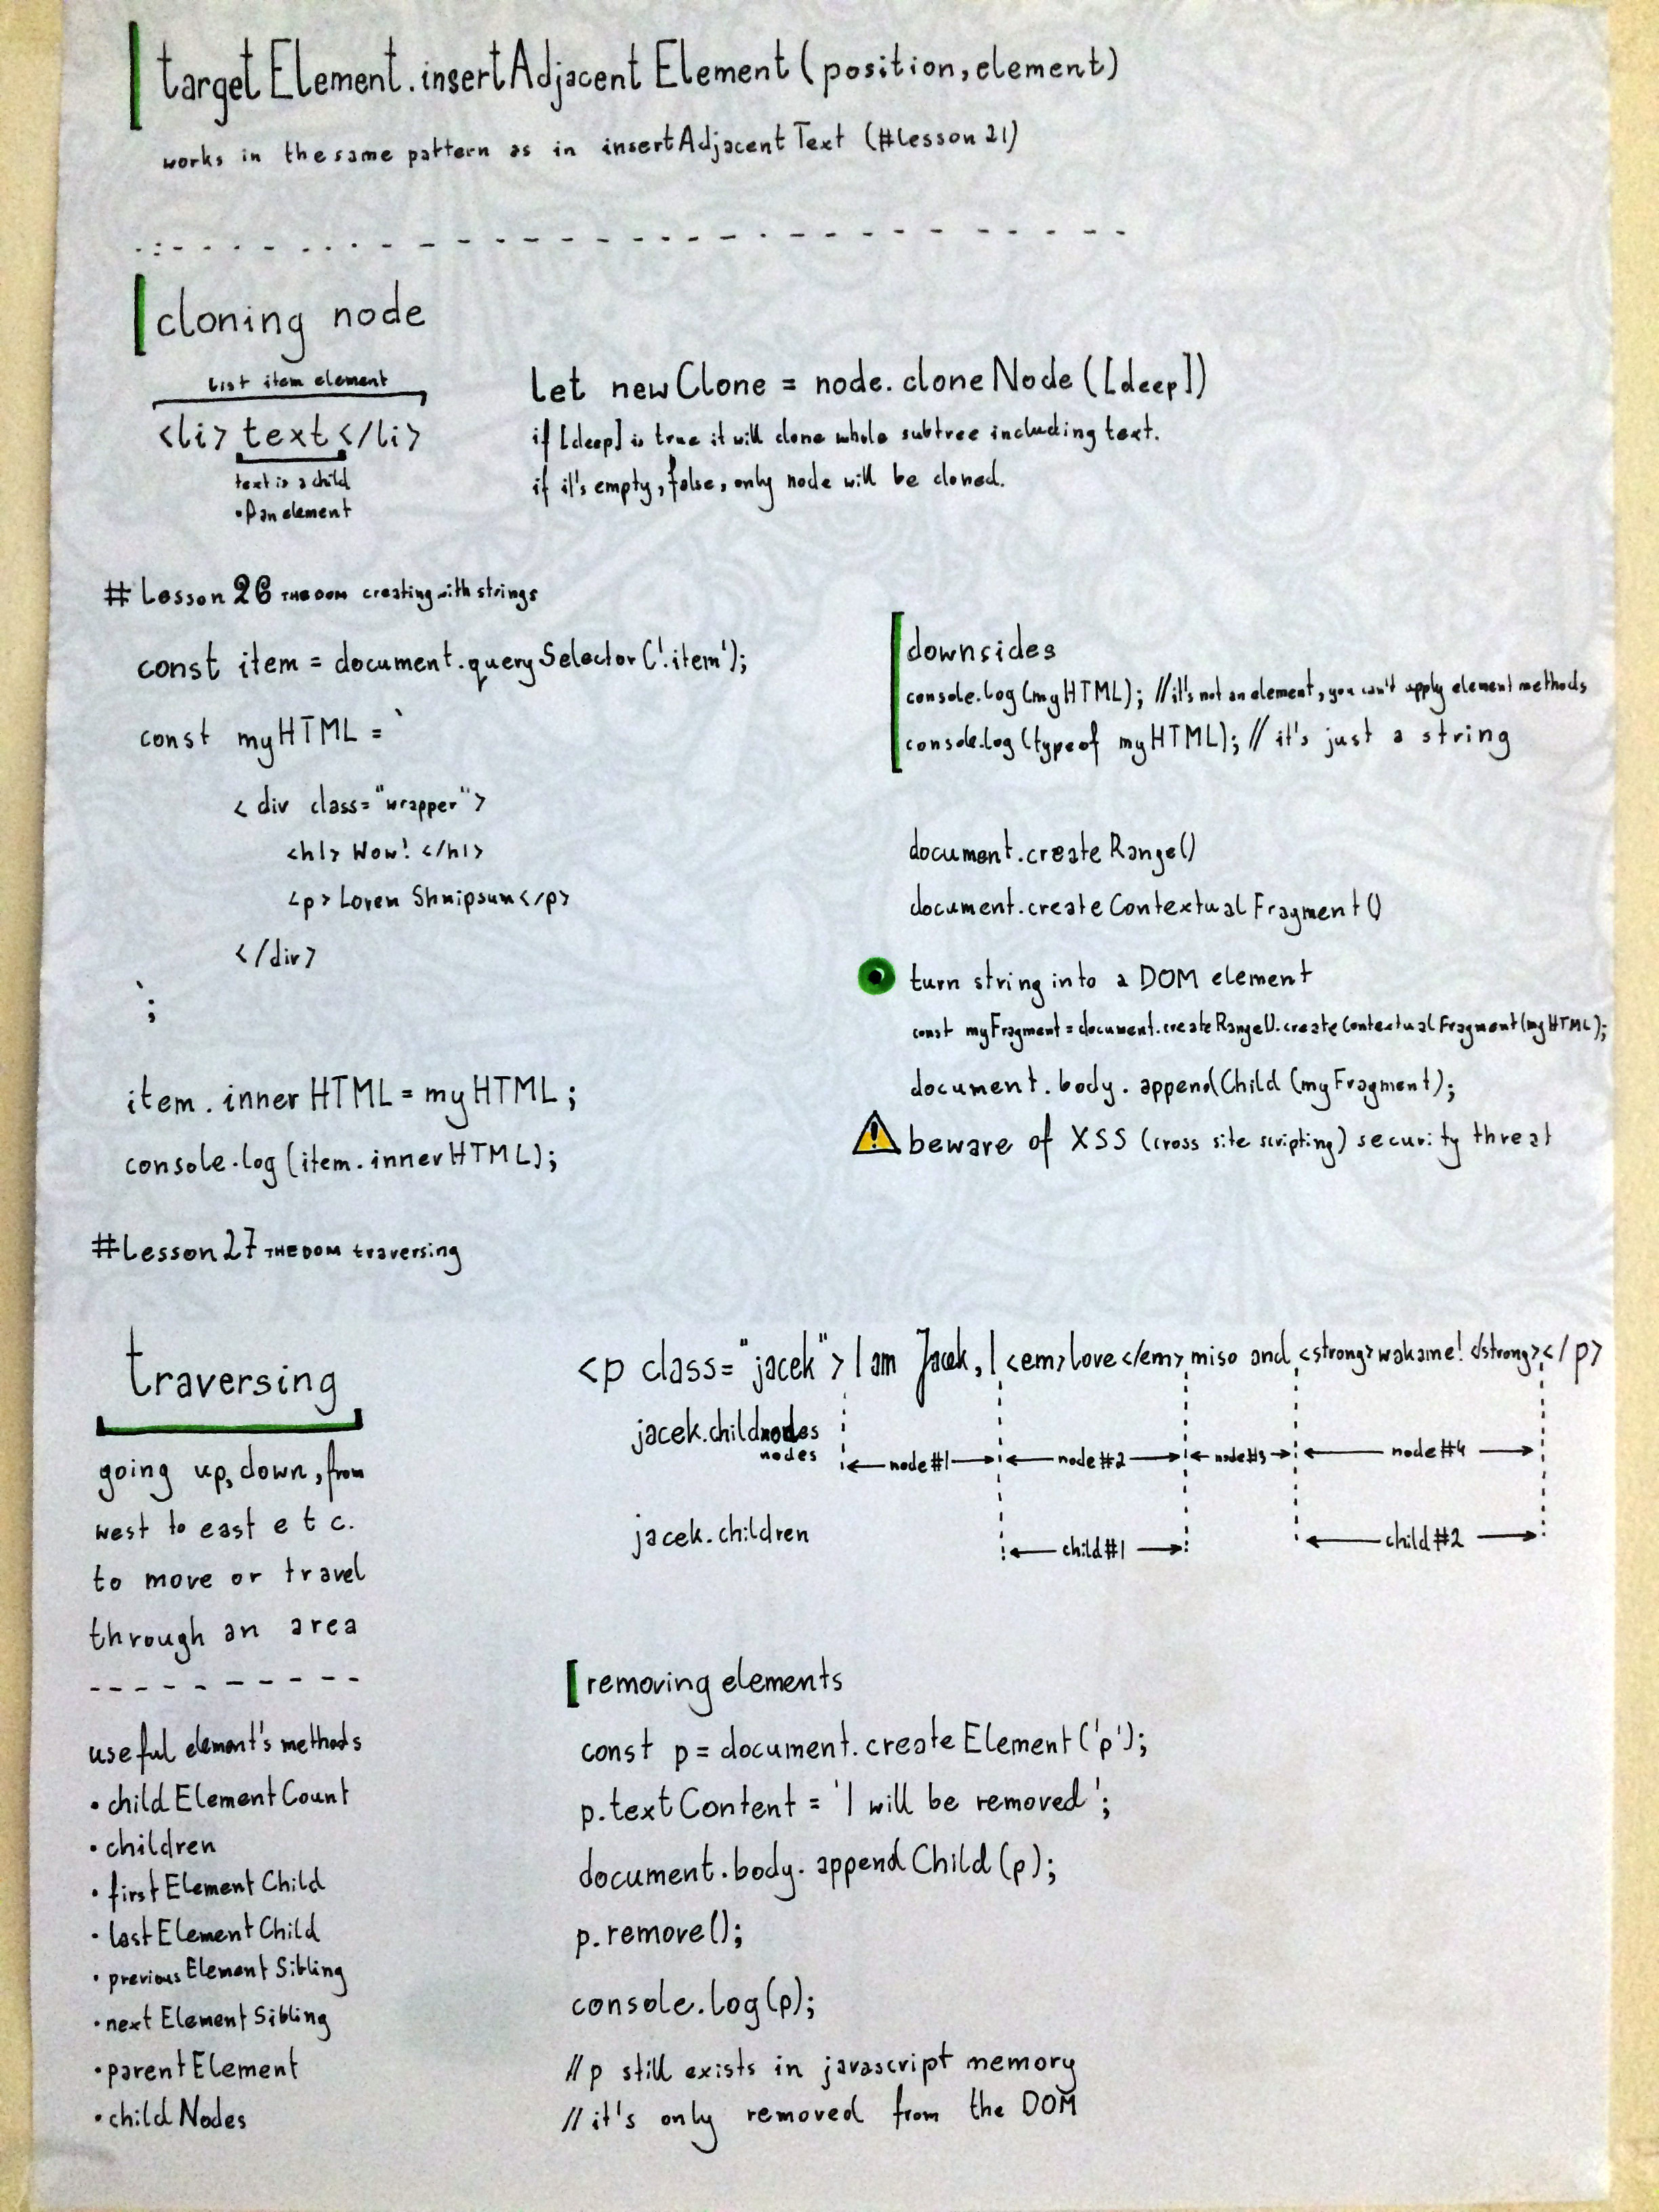 targetElement.insertAdjacentElement(position, element)
works in the same pattern as in insertAdjacentText (#Lesson 21)
cloning node
list item element
<li> text </li>
text is a child
of an element
let newClone = node.cloneNode([deep])
if [deep] is true it will clone whole subtree including text.
if it's empty, false, only node will be cloned.
# Lesson 26 THE DOM creating with strings
const item = document.querySelector('.item');
const myHTML = `
<div class="wrapper">
<h1> Wow! </h1>
<p> Lorem Shnipsum</p>
</div>
`;
item.innerHTML = myHTML;
console.log(item.innerHTML);
downsides
console.log(myHTML); //it's not an element, you can't apply element methods
console.log(typeof myHTML); // it's just a string
document.createRange()
document.createContextualFragment()
turn string into a DOM element
const myFragment = document.createRange().createContextualFragment(myHTML);
document.body.appendChild(myFragment);
beware of XSS (cross site scripting) security threat
#Lesson 27 THE DOM traversing
traversing
going up, down, from
west to east etc.
to move or travel
through an area
useful element's methods
• childElementCount
• children
• firstElementChild
• lastElementChild
• previousElementSibling
• nextElementSibling
• parentElement
• childNodes
<p class="jacek"> I am Jacek, I <em>love</em> miso and <strong>wakame! </strong></p>
jacek.childnodes
nodes
node#1 node#2 node#3 node#4
jacek.children
child#1 child#2
removing elements
const p = document.createElement('p');
p.textContent = 'I will be removed';
document.body.appendChild(p);
p.remove();
console.log(p);
// p still exists in javascript memory
// it's only removed from the DOM